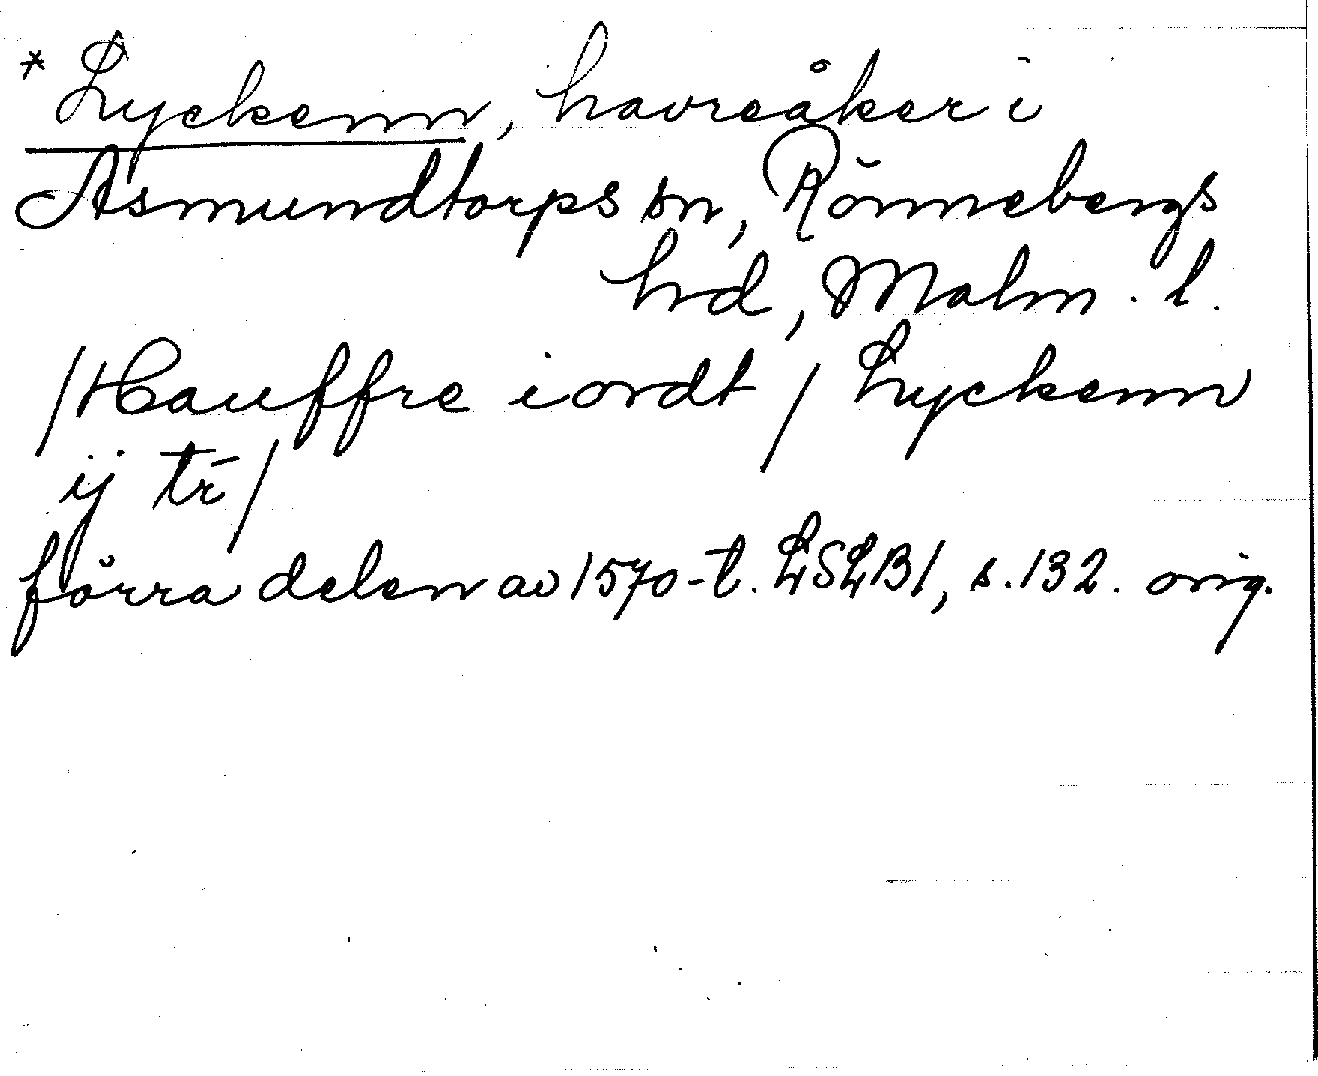 * Lyckenn, havreåker i
Asmundtorps sn, Rönnebergs
hrd, Malm. l.
/Hauffre iordt / Lyckenn
ij tr̄/
förra delen av 1570-t. LSLB1, s. 132. orig.